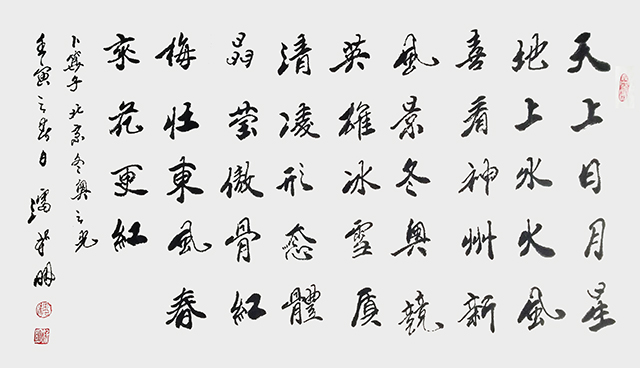 天上日月星
地上水火風
喜看神州新
風景冬奥競
英雄冰雪質
清凌形态體
晶莹傲骨紅
梅壮東風春
來花更紅
卜算子 北京冬奥之光
壬寅之春日 潘